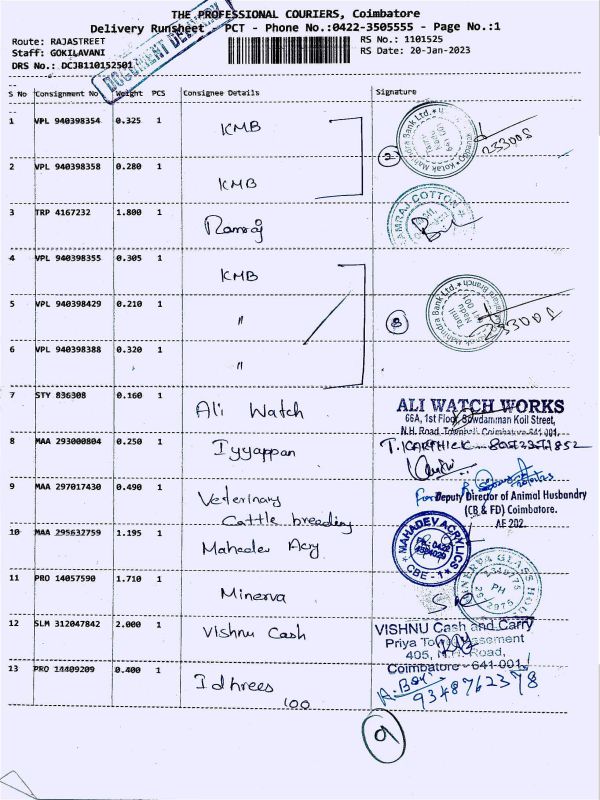 THE PROFESSIONAL COURIERS, Coimbatore
Delivery Runsheet - PCT - Phone No.:0422-3505555 - Page No.:1
Route: RAJASTREET
Staff: GOKILAVANI
DRS No.: DCJB110152501
RS No.: 1101525
RS Date: 20-Jan-2023
DOCUMENT DELIVERY
S No Consignment No Weight PCS Consignee Details Signature
1 VPL 940398354 0.325 1 KMB
2 VPL 940398358 0.280 1 KMB
Kotak Mahindra Bank Ltd.
2
233005
3 TRP 4167232 1.800 1 Ramraj
RAMRAJ COTTON
4 VPL 940398355 0.305 1 KMB
5 VPL 940398429 0.210 1 "
6 VPL 940398388 0.320 1 "
Mahindra Bank Ltd.
Tamil Nadu
233005
7 STY 836308 0.160 1 Ali Watch
ALI WATCH WORKS
66A, 1st Floor, Sowdamman Koil Street,
N.H. Road, Townhall, Coimbatore-641 001.
8 MAA 293000804 0.250 1 Iyyappan
T. KARTHICK
9 MAA 297017430 0.490 1 Veterinary
Cattle breeding
For Deputy Director of Animal Husbandry
(CB & FD) Coimbatore.
10 MAA 295632759 1.195 1 Mahadev Acry
MAHADEV ACRYLICS
CBE - 1
11 PRO 14057590 1.710 1 Minerva
MINERVA GLASS HOUSE
PH
12 SLM 312047842 2.000 1 Vishnu Cash
VISHNU Cash and Carry
405, N.H. Road,
Coimbatore - 641-001
13 PRO 14409209 0.400 1 Idhrees
100
9348762378
9